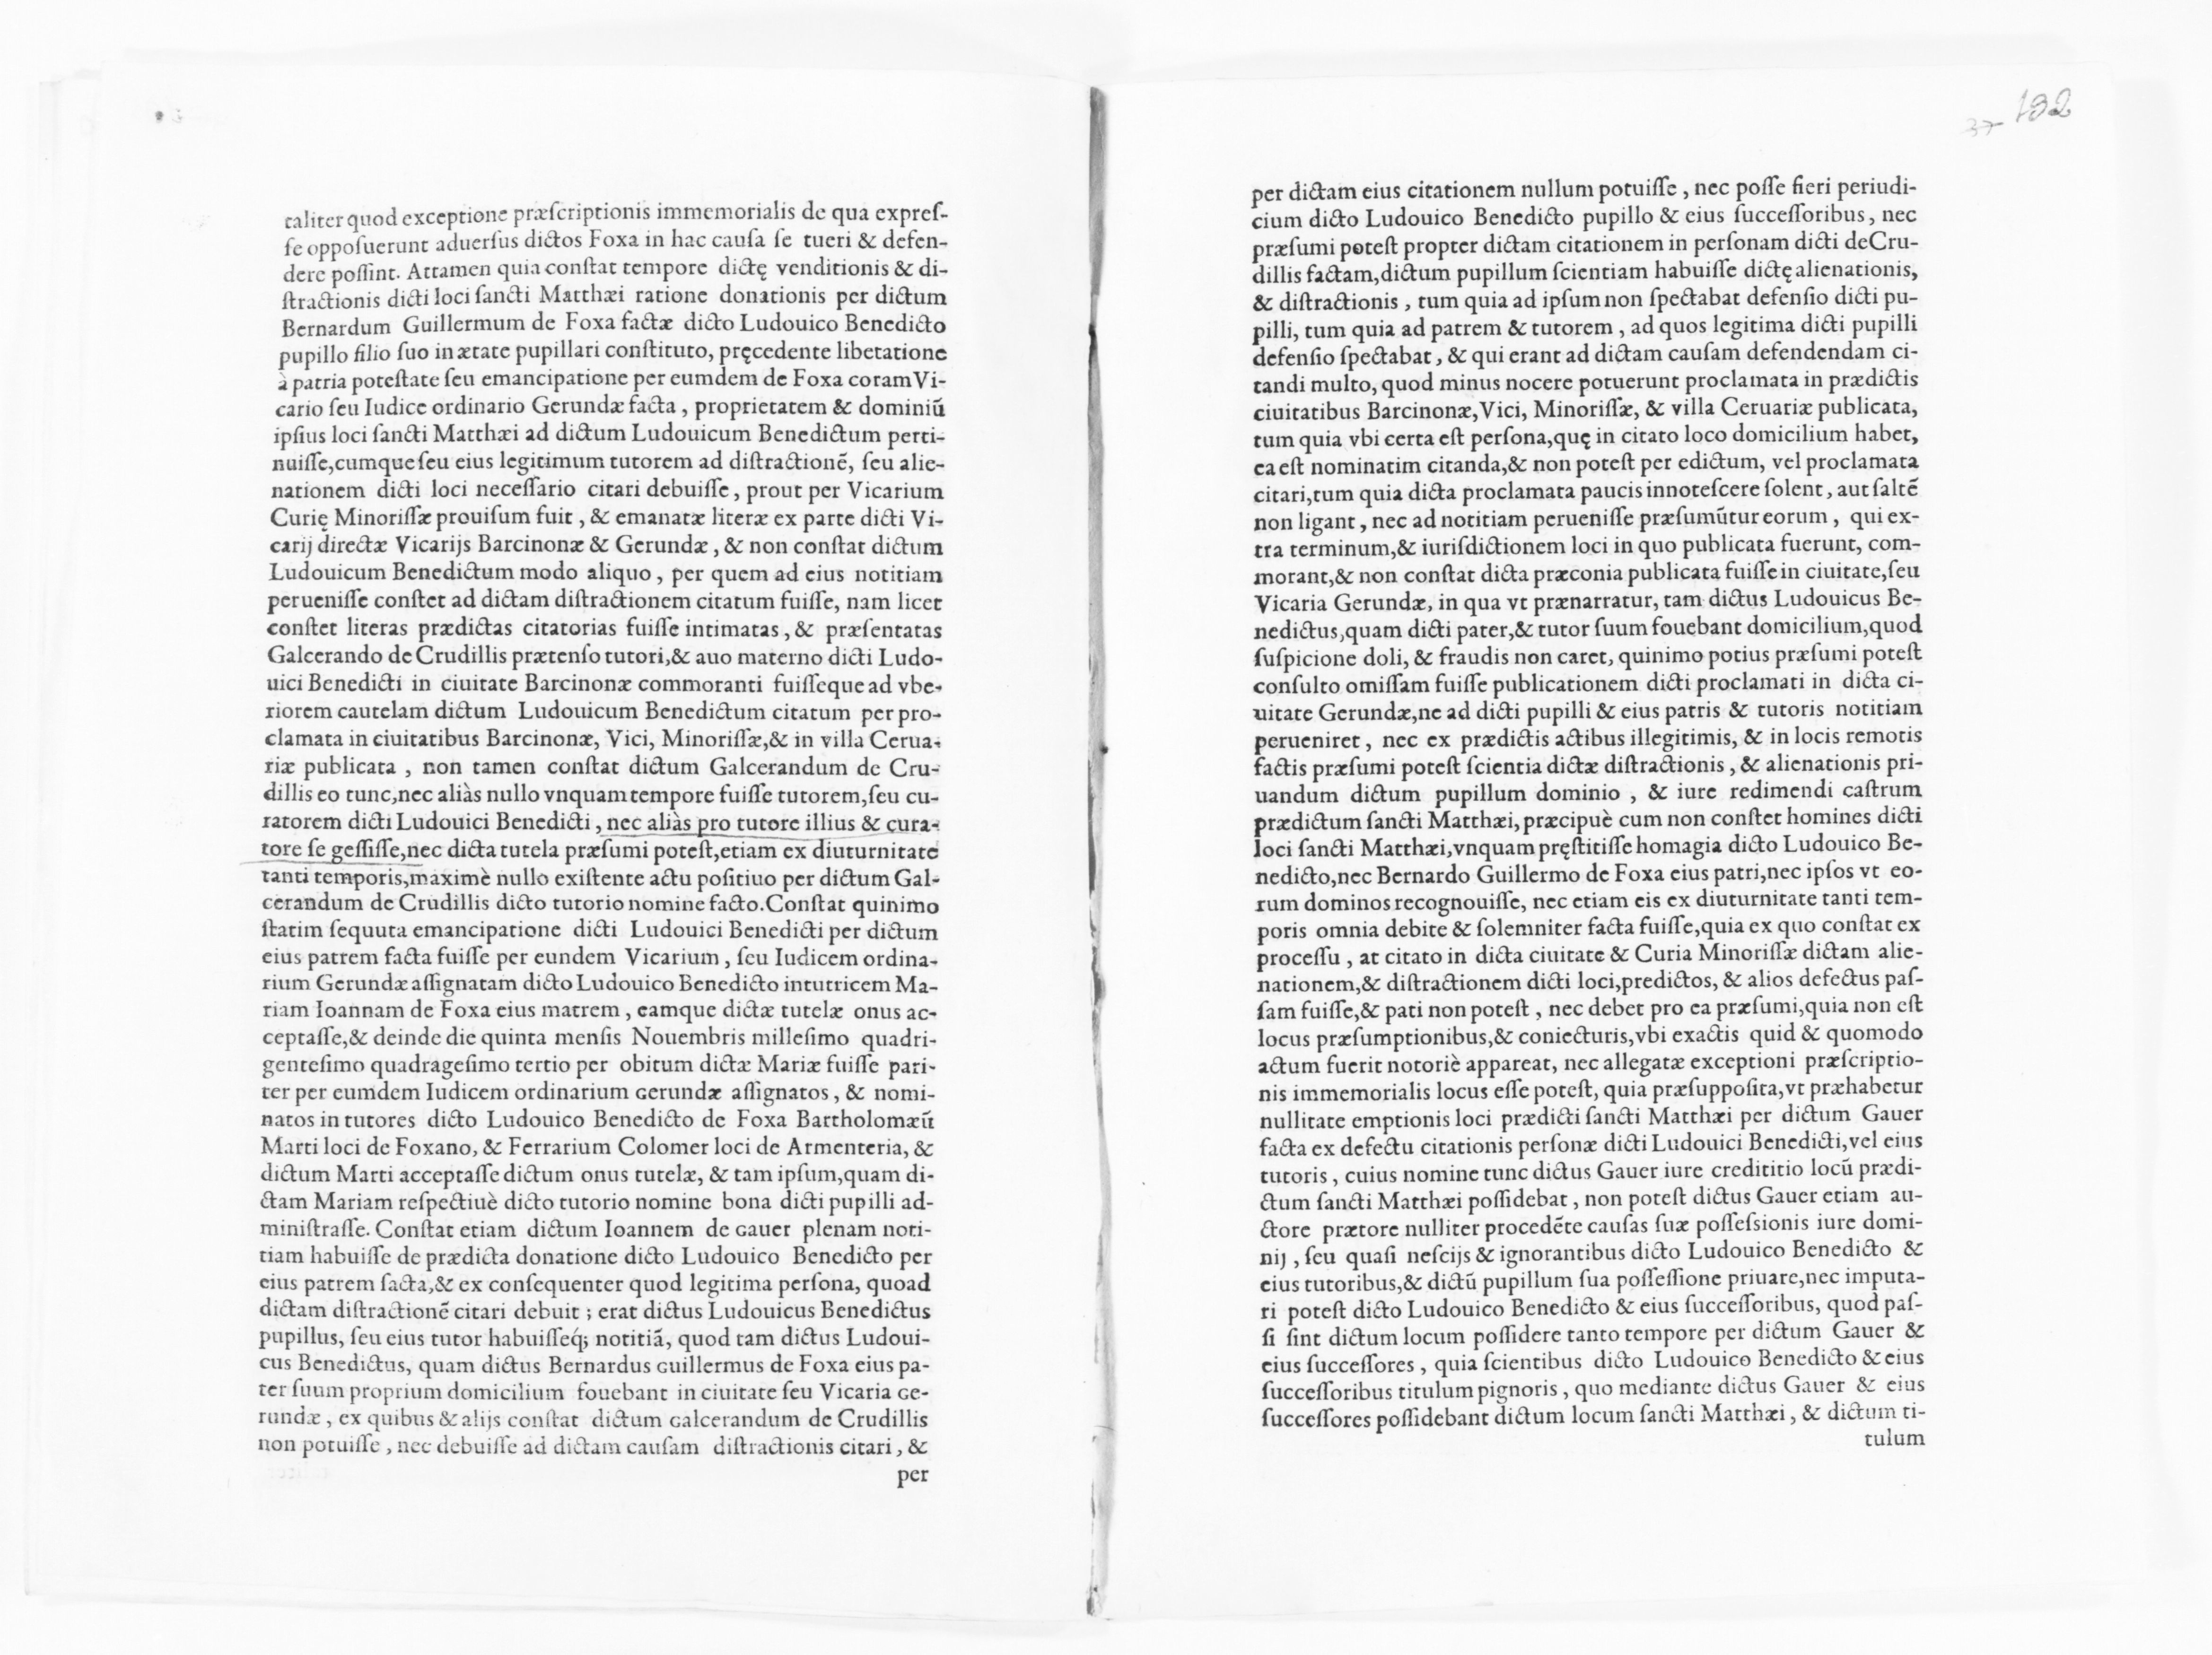 taliter quod exceptione præſcriptionis immemorialis de qua expreſ-
ſe oppoſuerunt aduerſus dictos Foxa in hac cauſa ſe tueri & defen-
dere poſſint. Attamen quia conſtat tempore dictę venditionis & di-
ſtractionis dicti loci ſancti Matthæi ratione donationis per dictum
Bernardum Guillermum de Foxa factæ dicto Ludouico Benedicto
pupillo filio ſuo in ætate pupillari conſtituto, pręcedente libetatione
à patria poteſtate ſeu emancipatione per eumdem de Foxa coram Vi-
cario ſeu Iudice ordinario Gerundæ facta, proprietatem & dominiũ
ipſius loci ſancti Matthæi ad dictum Ludouicum Benedictum perti-
nuiſſe,cumque ſeu eius legitimum tutorem ad diſtractionẽ, ſeu alie-
nationem dicti loci neceſſario citari debuiſſe, prout per Vicarium
Curię Minoriſſæ prouiſum fuit, & emanatæ literæ ex parte dicti Vi-
carij directæ Vicarijs Barcinonæ & Gerundæ, & non conſtat dictum
Ludouicum Benedictum modo aliquo, per quem ad eius notitiam
perueniſſe conſtet ad dictam diſtractionem citatum fuiſſe, nam licet
conſtet literas prædictas citatorias fuiſſe intimatas, & præſentatas
Galcerando de Crudillis prætenſo tutori,& auo materno dicti Ludo-
uici Benedicti in ciuitate Barcinonæ commoranti fuiſſeque ad vbe-
riorem cautelam dictum Ludouicum Benedictum citatum per pro-
clamata in ciuitatibus Barcinonæ, Vici, Minoriſſæ,& in villa Cerua-
riæ publicata, non tamen conſtat dictum Galcerandum de Cru-
dillis eo tunc,nec aliàs nullo vnquam tempore fuiſſe tutorem,ſeu cu-
ratorem dicti Ludouici Benedicti, nec aliàs pro tutore illius & cura-
tore ſe geſſiſſe,nec dicta tutela præſumi poteſt,etiam ex diuturnitate
tanti temporis,maximè nullo exiſtente actu poſitiuo per dictum Gal-
cerandum de Crudillis dicto tutorio nomine facto.Conſtat quinimo
ſtatim ſequuta emancipatione dicti Ludouici Benedicti per dictum
eius patrem facta fuiſſe per eundem Vicarium, ſeu Iudicem ordina-
rium Gerundæ aſſignatam dicto Ludouico Benedicto in tutricem Ma-
riam Ioannam de Foxa eius matrem, eamque dictæ tutelæ onus ac-
ceptaſſe,& deinde die quinta menſis Nouembris milleſimo quadri-
genteſimo quadrageſimo tertio per obitum dictæ Mariæ fuiſſe pari-
ter per eumdem Iudicem ordinarium Gerundæ aſſignatos, & nomi-
natos in tutores dicto Ludouico Benedicto de Foxa Bartholomæũ
Marti loci de Foxano, & Ferrarium Colomer loci de Armenteria, &
dictum Marti acceptaſſe dictum onus tutelæ, & tam ipſum,quam di-
ctam Mariam reſpectiuè dicto tutorio nomine bona dicti pupilli ad-
miniſtraſſe. Conſtat etiam dictum Ioannem de Gauer plenam noti-
tiam habuiſſe de prædicta donatione dicto Ludouico Benedicto per
eius patrem facta,& ex conſequenter quod legitima perſona, quoad
dictam diſtractionẽ citari debuit; erat dictus Ludouicus Benedictus
pupillus, ſeu eius tutor habuiſſeq́; notitiã, quod tam dictus Ludoui-
cus Benedictus, quam dictus Bernardus Guillermus de Foxa eius pa-
ter ſuum proprium domicilium fouebant in ciuitate ſeu Vicaria Ge-
rundæ, ex quibus & alijs conſtat dictum Galcerandum de Crudillis
non potuiſſe, nec debuiſſe ad dictam cauſam diſtractionis citari, &
per
37 132
per dictam eius citationem nullum potuiſſe, nec poſſe fieri periudi-
cium dicto Ludouico Benedicto pupillo & eius ſucceſſoribus, nec
præſumi poteſt propter dictam citationem in perſonam dicti de Cru-
dillis factam,dictum pupillum ſcientiam habuiſſe dictę alienationis,
& diſtractionis, tum quia ad ipſum non ſpectabat defenſio dicti pu-
pilli, tum quia ad patrem & tutorem, ad quos legitima dicti pupilli
defenſio ſpectabat, & qui erant ad dictam cauſam defendendam ci-
tandi multo, quod minus nocere potuerunt proclamata in prædictis
ciuitatibus Barcinonæ,Vici, Minoriſſæ, & villa Ceruariæ publicata,
tum quia vbi certa eſt perſona,quę in citato loco domicilium habet,
ea eſt nominatim citanda,& non poteſt per edictum, vel proclamata
citari,tum quia dicta proclamata paucis innoteſcere ſolent, aut ſaltẽ
non ligant, nec ad notitiam perueniſſe præſumũtur eorum, qui ex-
tra terminum,& iuriſdictionem loci in quo publicata fuerunt, com-
morant,& non conſtat dicta præconia publicata fuiſſe in ciuitate,ſeu
Vicaria Gerundæ, in qua vt prænarratur, tam dictus Ludouicus Be-
nedictus,quam dicti pater,& tutor ſuum fouebant domicilium,quod
ſuſpicione doli, & fraudis non caret, quinimo potius præſumi poteſt
conſulto omiſſam fuiſſe publicationem dicti proclamati in dicta ci-
uitate Gerundæ,ne ad dicti pupilli & eius patris & tutoris notitiam
perueniret, nec ex prædictis actibus illegitimis, & in locis remotis
factis præſumi poteſt ſcientia dictæ diſtractionis, & alienationis pri-
uandum dictum pupillum dominio, & iure redimendi caſtrum
prædictum ſancti Matthæi, præcipuè cum non conſtet homines dicti
loci ſancti Matthæi,vnquam pręſtitiſſe homagia dicto Ludouico Be-
nedicto,nec Bernardo Guillermo de Foxa eius patri,nec ipſos vt eo-
rum dominos recognouiſſe, nec etiam eis ex diuturnitate tanti tem-
poris omnia debite & ſolemniter facta fuiſſe,quia ex quo conſtat ex
proceſſu, at citato in dicta ciuitate & Curia Minoriſſæ dictam alie-
nationem,& diſtractionem dicti loci,predictos, & alios defectus paſ-
ſam fuiſſe,& pati non poteſt, nec debet pro ea præſumi,quia non eſt
locus præſumptionibus,& coniecturis,vbi exactis quid & quomodo
actum fuerit notoriè appareat, nec allegatæ exceptioni præſcriptio-
nis immemorialis locus eſſe poteſt, quia præſuppoſita,vt præhabetur
nullitate emptionis loci prædicti ſancti Matthæi per dictum Gauer
facta ex defectu citationis perſonæ dicti Ludouici Benedicti,vel eius
tutoris, cuius nomine tunc dictus Gauer iure credititio locũ prædi-
ctum ſancti Matthæi poſſidebat, non poteſt dictus Gauer etiam au-
ctore prætore nulliter procedẽte cauſas ſuæ poſſeſsionis iure domi-
nij, ſeu quaſi neſcijs & ignorantibus dicto Ludouico Benedicto &
eius tutoribus,& dictũ pupillum ſua poſſeſſione priuare,nec imputa-
ri poteſt dicto Ludouico Benedicto & eius ſucceſſoribus, quod paſ-
ſi ſint dictum locum poſſidere tanto tempore per dictum Gauer &
eius ſucceſſores, quia ſcientibus dicto Ludouico Benedicto & eius
ſucceſſoribus titulum pignoris, quo mediante dictus Gauer & eius
ſucceſſores poſſidebant dictum locum ſancti Matthæi, & dictum ti-
tulum